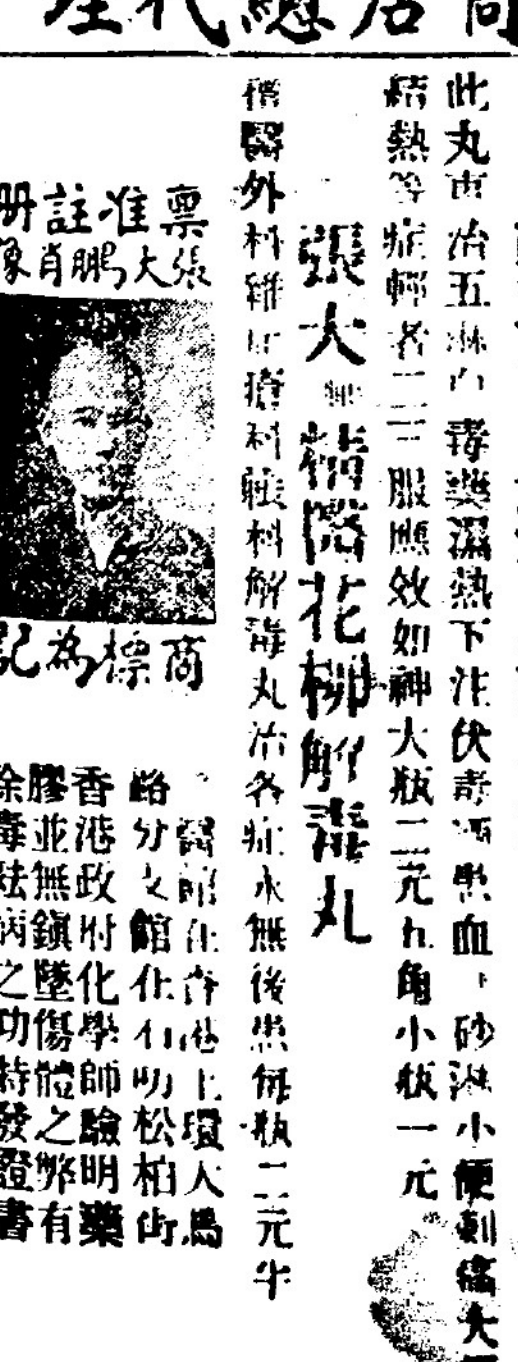 商店總代理
此丸専治五淋白毒藥濕熱下注伏毒 患血 砂淋小便刺痛大
結熱等症輕者二三服應效如神大瓶二元九角小瓶一元
張大 精醫花柳解毒丸
精醫外科雜症瘡科 科解毒丸治各症永無後患每瓶二元半
稟准註册
張大鵬肖像
商標為記
醫館在香港上環大馬
路分文館 松柏街
香港政府化學師驗明藥
膠並無鎮墜傷體之弊有
除毒祛病之功特發證書